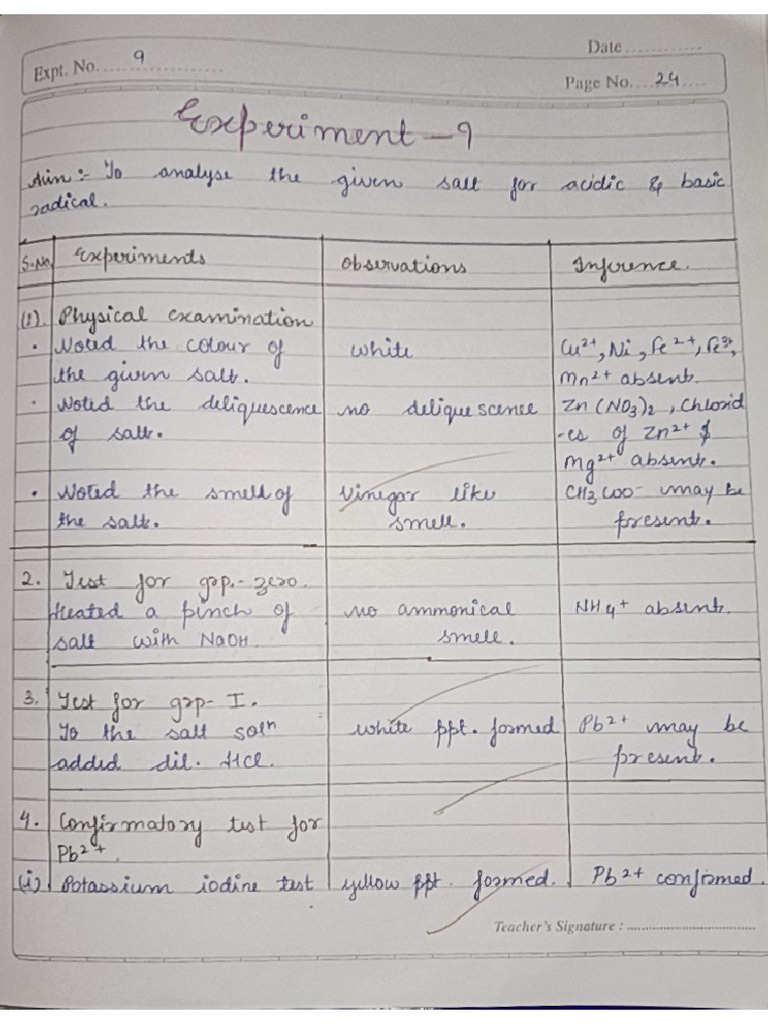 Expt. No. 9
Date
Page No. 24
Experiment - 9
Aim :- To analyse the given salt for acidic & basic
radical.
S.No Experiments Observations Inference.
(1). Physical examination
• Noted the colour of white Cu²⁺, Ni, Fe²⁺, Fe³⁺,
the given salt. Mn²⁺ absent.
• Noted the deliquescence no deliquescence Zn(NO₃)₂, Chlorid
of salt. -es of Zn²⁺ &
Mg²⁺ absent.
• Noted the smell of Vinegar like CH₃COO⁻ may be
the salt. smell. present.
2. Test for grp.- zero.
Heated a pinch of no ammonical NH₄⁺ absent.
salt with NaOH. smell.
3. Test for grp- I.
To the salt solⁿ white ppt. formed Pb²⁺ may be
added dil. HCl. present.
4. Confirmatory test for
Pb²⁺.
(i) Potassium iodine test yellow ppt. formed. Pb²⁺ confirmed.
Teacher's Signature :